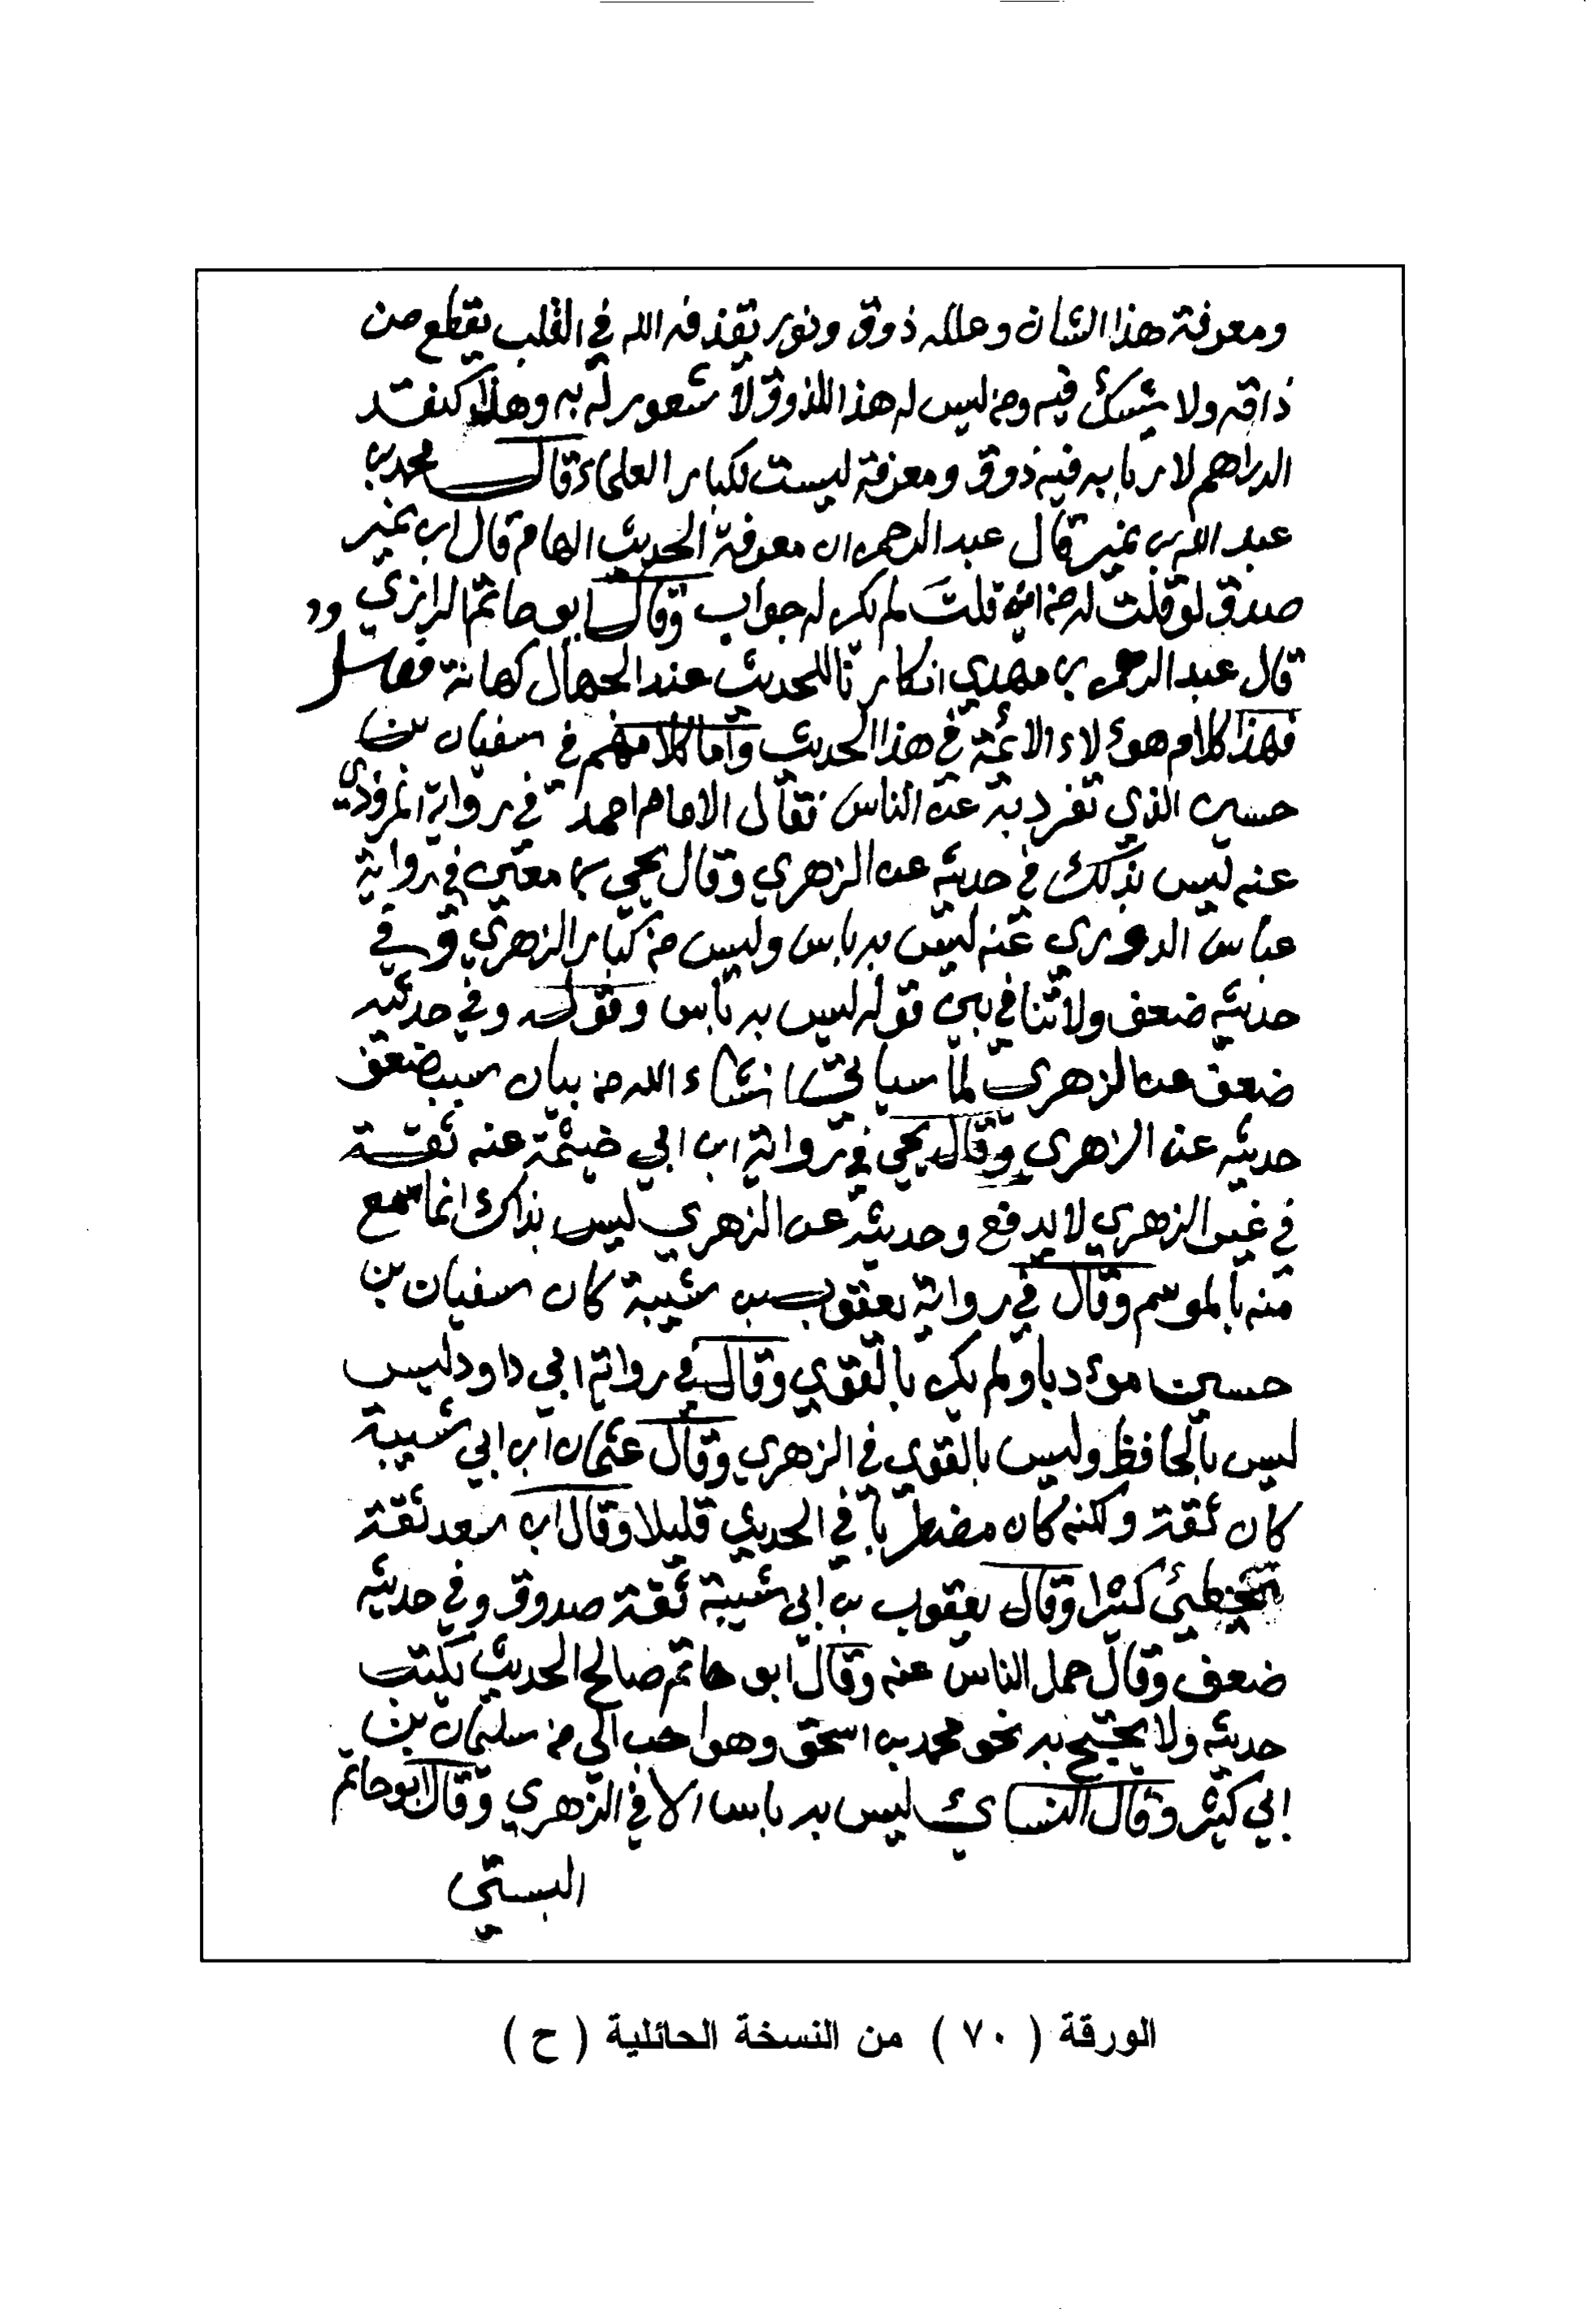 ومعرفة هذا الشان وعلله ذوق ونور يقذفه الله في القلب يقطع من
ذاقه ولا يشك فيه ومن ليس له هذا الذوق لا شعور له به وهذا كنقد
الدراهم لاربابه فيه ذوق ومعرفة ليست لكبار العلماء وقال محمد بن
عبد الله بن نمير قال عبد الرحمن ان معرفة الحديث الهام قال ابن نمير
صدق لو قلت له من اين قلت لم يكن له جواب وقال ابو حاتم الرازي
قال عبد الرحمن بن مهدي انكارنا للحديث عند الجهال كهانة فصل
فهذا كلام هوءلاء الائمة في هذا الحديث واما كلامهم في سفيان بن
حسين الذي تفرد به عن الناس فقال الامام احمد في رواية المروذي
عنه ليس بذلك في حديثه عن الزهري وقال يحيى بن معين في رواية
عباس الدوري عنه ليس به باس وليس من كبار الزهري وفي
حديثه ضعف ولا تنافي بين قوله ليس به باس وقوله وفي حديثه
ضعف عن الزهري لما سياتي انشاء الله من بيان سبب ضعف
حديثه عن الزهري وقال يحيى في رواية ابن ابي خيثمة عنه ثقة
في غير الزهري لا يدفع وحديثه عن الزهري ليس بذاك انما سمع
منه بالموسم وقال في رواية يعقوب بن شيبة كان سفيان بن
حسين موءدبا ولم يكن بالقوي وقال في رواية ابي داود ليس
ليس بالحافظ وليس بالقوي في الزهري وقال عثمان ابن ابي شيبة
كان ثقة ولكنه كان مضطربا في الحديث قليلا وقال ابن سعد ثقة
يخطئ كثيرا وقال يعقوب بن ابي شيبة ثقة صدوق وفي حديثه
ضعف وقال حمل الناس عنه وقال ابو حاتم صالح الحديث يكتب
حديثه ولا يحتج به نحو محمد بن اسحق وهو احب الي من سليمان بن
ابي كثير وقال النسائي ليس به باس الا في الزهري وقال ابو حاتم
البستي
الورقة ( ٧٠ ) من النسخة الحائلية ( ح )